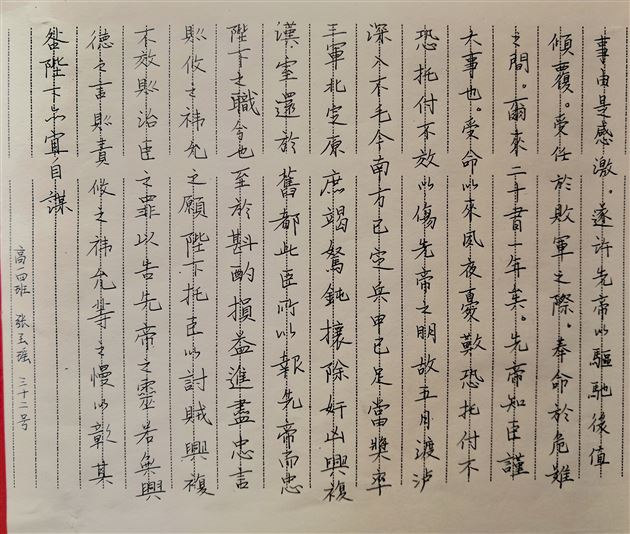 事由是感激。遂许先帝以驅馳後值
傾覆。受任於敗軍之際。奉命於危難
之間。爾來二十有一年矣。先帝知臣謹
大事也。受命以來夙夜憂歎恐托付不
恐托付不效以傷先帝之明故五月渡泸
深入不毛今南方已定兵甲已足當獎率
三軍北定原庶竭駑鈍攘除奸凶興複
漢室還於舊都此臣所以報先帝而忠
陛下之職分也至於斟酌損益進盡忠言
則攸之祎允之願陛下托臣以討賊興複
不效則治臣之罪以告先帝之靈若無興
德之言則責攸之祎允等之慢以彰其
咎陛下亦宜自謀
高一四班 张玉瑶 三十二号